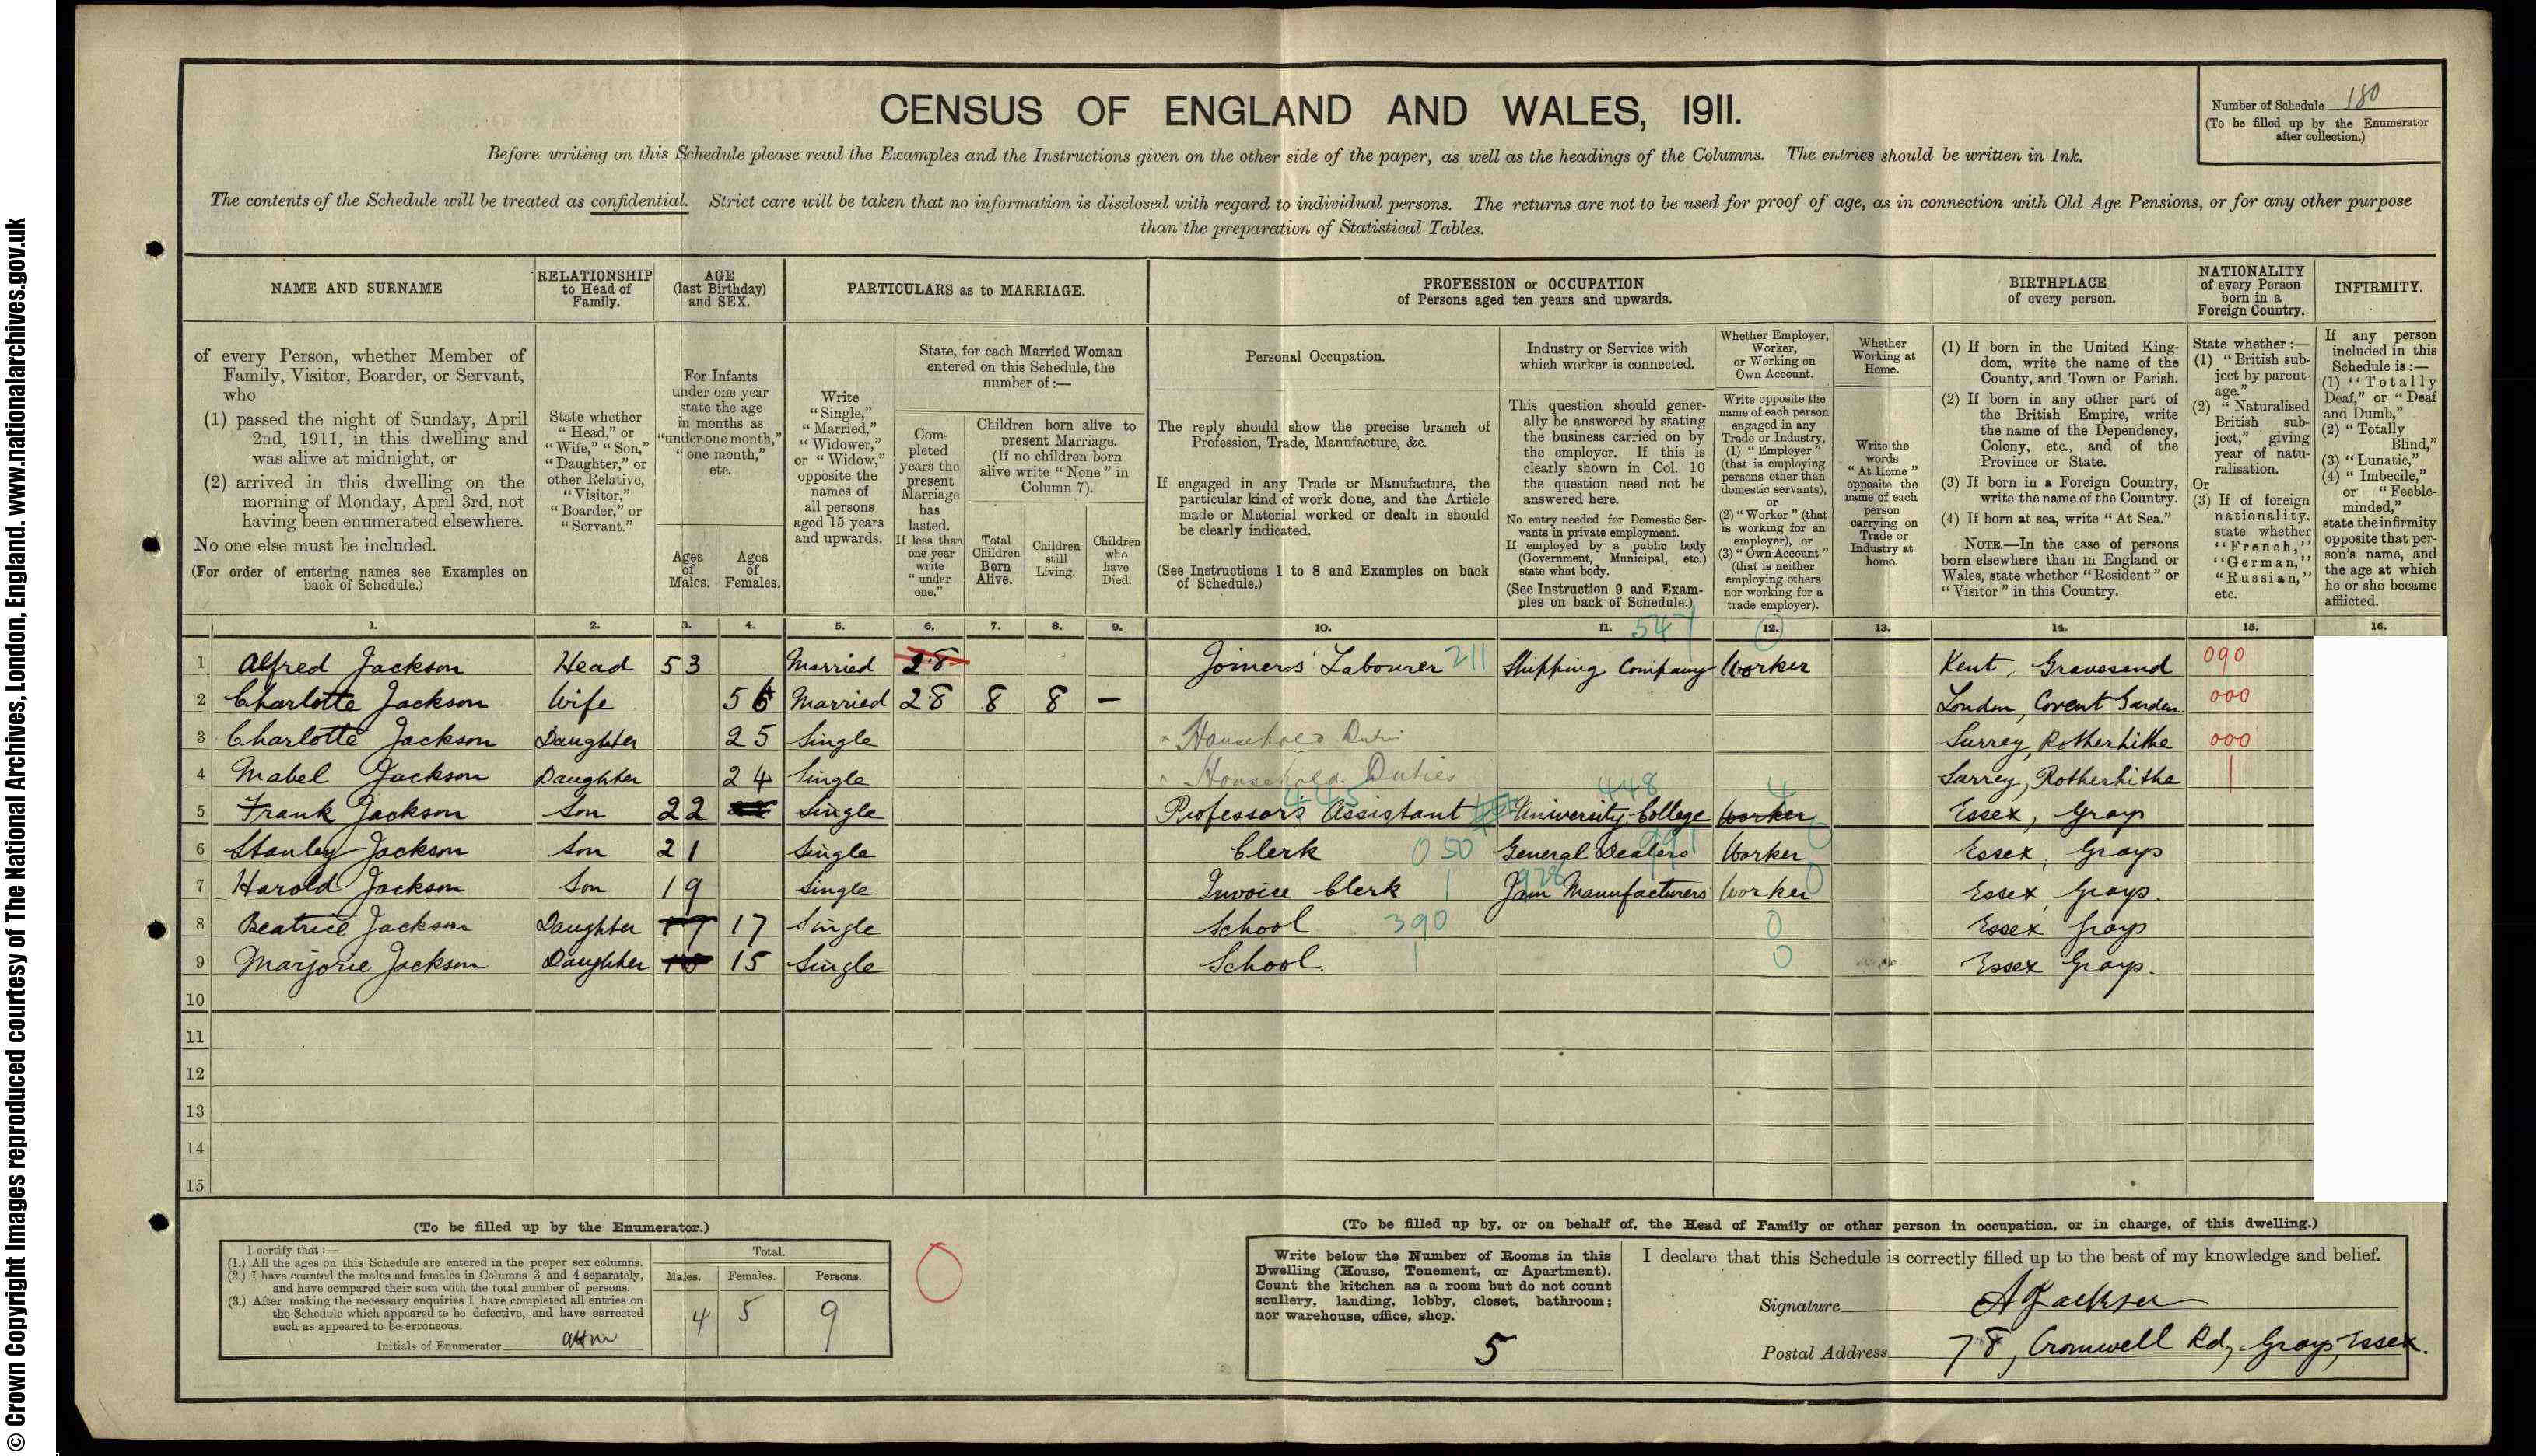 CENSUS OF ENGLAND AND WALES, 1911.
Number of Schedule 180
(To be filled up by the Enumerator
after collection.)
Before writing on this Schedule please read the Examples and the Instructions given on the other side of the paper, as well as the headings of the Columns. The entries should be written in Ink.
The contents of the Schedule will be treated as confidential. Strict care will be taken that no information is disclosed with regard to individual persons. The returns are not to be used for proof of age, as in connection with Old Age Pensions, or for any other purpose
than the preparation of Statistical Tables.
NAME AND SURNAME
of every Person, whether Member of
Family, Visitor, Boarder, or Servant,
who
(1) passed the night of Sunday, April
2nd, 1911, in this dwelling and
was alive at midnight, or
(2) arrived in this dwelling on the
morning of Monday, April 3rd, not
having been enumerated elsewhere.
No one else must be included.
(For order of entering names see Examples on
back of Schedule.)
RELATIONSHIP
to Head of
Family.
State whether
"Head," or
"Wife," "Son,"
"Daughter," or
other Relative,
"Visitor,"
"Boarder," or
"Servant."
AGE
(last Birthday)
and SEX.
For Infants
under one year
state the age
in months as
"under one month,"
"one month,"
etc.
Ages
of
Males.
Ages
of
Females.
PARTICULARS as to MARRIAGE.
Write
"Single,"
"Married,"
"Widower,"
or "Widow,"
opposite the
names of
all persons
aged 15 years
and upwards.
State, for each Married Woman
entered on this Schedule, the
number of :—
Com-
pleted
years the
present
Marriage
has
lasted.
If less than
one year
write
"under
one."
Children born alive to
present Marriage.
(If no children born
alive write "None" in
Column 7).
Total
Children
Born
Alive.
Children
still
Living.
Children
who
have
Died.
PROFESSION or OCCUPATION
of Persons aged ten years and upwards.
Personal Occupation.
The reply should show the precise branch of
Profession, Trade, Manufacture, &c.
If engaged in any Trade or Manufacture, the
particular kind of work done, and the Article
made or Material worked or dealt in should
be clearly indicated.
(See Instructions 1 to 8 and Examples on back
of Schedule.)
Industry or Service with
which worker is connected.
This question should gener-
ally be answered by stating
the business carried on by
the employer. If this is
clearly shown in Col. 10
the question need not be
answered here.
No entry needed for Domestic Ser-
vants in private employment.
If employed by a public body
(Government, Municipal, etc.)
state what body.
(See Instruction 9 and Exam-
ples on back of Schedule.)
Whether Employer,
Worker,
or Working on
Own Account.
Write opposite the
name of each person
engaged in any
Trade or Industry,
(1) "Employer"
(that is employing
persons other than
domestic servants),
or
(2) "Worker" (that
is working for an
employer), or
(3) "Own Account"
(that is neither
employing others
nor working for a
trade employer).
Whether
Working at
Home.
Write the
words
"At Home"
opposite the
name of each
person
carrying on
Trade or
Industry at
home.
BIRTHPLACE
of every person.
(1) If born in the United King-
dom, write the name of the
County, and Town or Parish.
(2) If born in any other part of
the British Empire, write
the name of the Dependency,
Colony, etc., and of the
Province or State.
(3) If born in a Foreign Country,
write the name of the Country.
(4) If born at sea, write "At Sea."
NOTE.—In the case of persons
born elsewhere than in England or
Wales, state whether "Resident" or
"Visitor" in this Country.
NATIONALITY
of every Person
born in a
Foreign Country.
State whether :—
(1) "British sub-
ject by parent-
age."
(2) "Naturalised
British sub-
ject," giving
year of natu-
ralisation.
Or
(3) If of foreign
nationality,
state whether
"French,"
"German,"
"Russian,"
etc.
INFIRMITY.
If any person
included in this
Schedule is :—
(1) "Totally
Deaf," or "Deaf
and Dumb,"
(2) "Totally
Blind,"
(3) "Lunatic,"
(4) "Imbecile,"
or "Feeble-
minded,"
state the infirmity
opposite that per-
son's name, and
the age at which
he or she became
afflicted.
1. 2. 3. 4. 5. 6. 7. 8. 9. 10. 11. 547 12. 13. 14. 15. 16.
1 Alfred Jackson Head 53 Married 28 Joiners' Labourer 211 Shipping Company Worker Kent, Gravesend 090
2 Charlotte Jackson Wife 56 Married 28 8 8 — London, Covent Garden 000
3 Charlotte Jackson Daughter 25 Single Household Duties Surrey, Rotherhithe 000
4 Mabel Jackson Daughter 24 Single Household Duties 448 4 Surrey, Rotherhithe
5 Frank Jackson Son 22 Single Professor's Assistant University College Worker Essex, Grays
6 Stanley Jackson Son 21 Single Clerk 050 General Dealers Worker Essex, Grays
7 Harold Jackson Son 19 Single Invoise Clerk Jam Manufacturers Worker Essex, Grays.
8 Beatrice Jackson Daughter 17 17 Single School 390 0 Essex Grays
9 Marjorie Jackson Daughter 15 Single School. 0 Essex Grays.
10
11
12
13
14
15
(To be filled up by the Enumerator.)
I certify that :—
(1.) All the ages on this Schedule are entered in the proper sex columns.
(2.) I have counted the males and females in Columns 3 and 4 separately,
and have compared their sum with the total number of persons.
(3.) After making the necessary enquiries I have completed all entries on
the Schedule which appeared to be defective, and have corrected
such as appeared to be erroneous.
Initials of Enumerator
Total.
Males. Females. Persons.
4 5 9
(To be filled up by, or on behalf of, the Head of Family or other person in occupation, or in charge, of this dwelling.)
Write below the Number of Rooms in this
Dwelling (House, Tenement, or Apartment).
Count the kitchen as a room but do not count
scullery, landing, lobby, closet, bathroom;
nor warehouse, office, shop.
5
I declare that this Schedule is correctly filled up to the best of my knowledge and belief.
Signature A Jackson
Postal Address 78, Cromwell Rd, Grays, Essex.
© Crown Copyright Images reproduced courtesy of The National Archives, London, England. www.nationalarchives.gov.uk